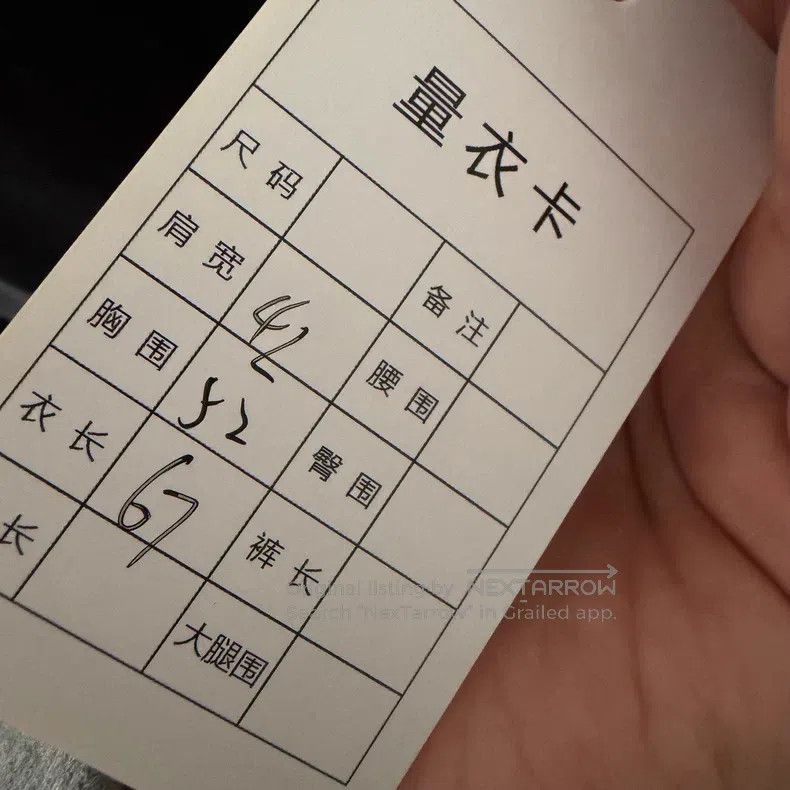 量衣卡
尺码 备注
肩宽 42 腰围
胸围 52 臀围
衣长 67 裤长
长 大腿围
Original listing by NEXTARROW
Search "NexTarrow" in Grailed app.